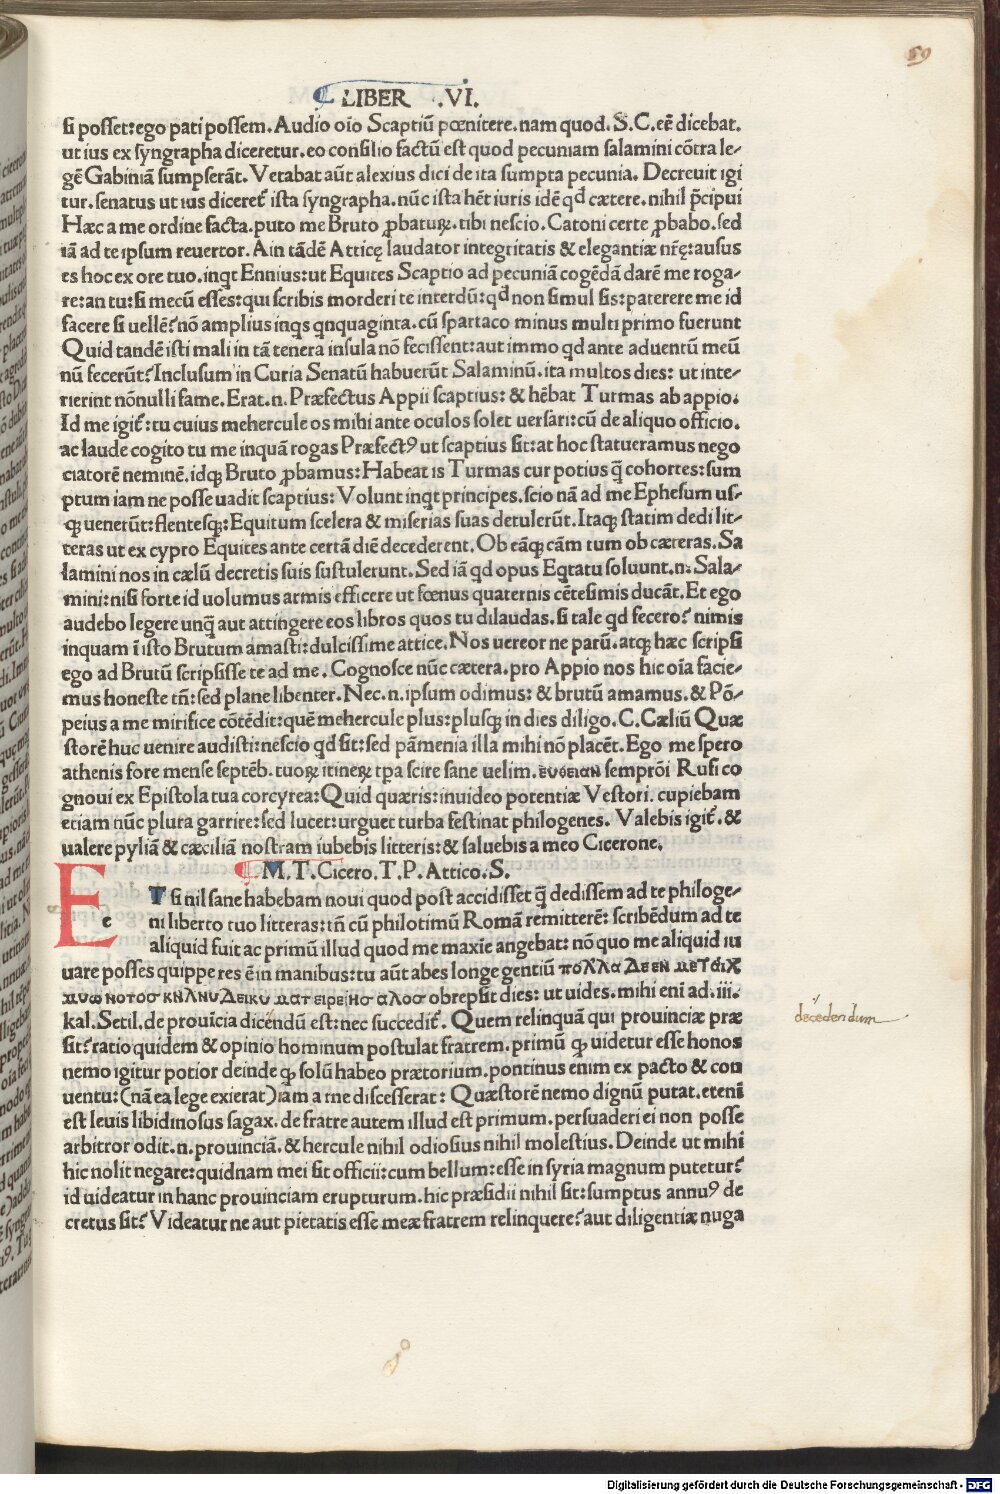 59
LIBER .VI.
si posset:ego pati possem. Audio oīo Scaptiū pœnitere. nam quod. S.C. eē dicebat.
ut ius ex syngrapha diceretur. eo consilio factū est quod pecuniam salamini cōtra le-
gē Gabiniā sumpserāt. Vetabat aūt alexius dici de ita sumpta pecunia. Decreuit igi
tur. senatus ut ius diceret᷑ ista syngrapha. nūc ista hēt iuris idē qd cætere. nihil p̄cipui
Hæc a me ordine facta. puto me Bruto ꝓbaturꝝ. tibi nescio. Catoni certe ꝓbabo. sed
iā ad te ipsum reuertor. Ain tādē Atticę laudator integritatis & elegantiæ nr̄ę: ausus
es hoc ex ore tuo. inqt Ennius: ut Equites Scaptio ad pecuniā cogēdā darē me roga-
re: an tu: si mecū esses: qui scribis morderi te interdū: qd non simul sis: paterere me id
facere si uellē? nō amplius inqs qnquaginta. cū spartaco minus multi primo fuerunt
Quid tandē isti mali in tā tenera insula nō fecissent: aut immo qd ante aduentū meū
nū fecerūt? Inclusum in Curia Senatū habuerūt Salaminū. ita multos dies: ut inte-
rierint nōnulli fame. Erat. n. Præfectus Appii scaptius: & hēbat Turmas ab appio.
Id me igit᷑: tu cuius mehercule os mihi ante oculos solet uersari: cū de aliquo officio.
ac laude cogito tu me inquā rogas Præfectꝰ ut scaptius sit: at hoc statueramus nego
ciatorē neminē. idqꝫ Bruto ꝓbamus: Habeat is Turmas cur potius q̄ cohortes: sum
ptum iam ne posse uadit scaptius: Volunt inqt principes. scio nā ad me Ephesum us-
qꝫ uenerūt: flentesqꝫ: Equitum scelera & miserias suas detulerūt. Itaqꝫ statim dedi lit-
teras ut ex cypro Equites ante certā diē decederent. Ob eāqꝫ cām tum ob cæteras. Sa
lamini nos in cælū decretis suis sustulerunt. Sed iā qd opus Eqtatu soluunt. n. Sala-
mini: nisi forte id uolumus armis efficere ut fœnus quaternis cētesimis ducāt. Et ego
audebo legere unq̄ aut attingere eos libros quos tu dilaudas. si tale qd fecero? nimis
inquam ī isto Brutum amasti: dulcissime attice. Nos uereor ne parū. atqꝫ hæc scripsi
ego ad Brutū scripsisse te ad me. Cognosce nūc cætera. pro Appio nos hic oīa facie-
mus honeste tn̄: sed plane libenter. Nec. n. ipsum odimus: & brutū amamus. & Pō-
peius a me mirifice cōtēdit: quē mehercule plus: plusqꝫ in dies diligo. C. Cæliū Quæ
storē huc uenire audisti: nescio qd sit: sed pāmenia illa mihi nō placēt. Ego me spero
athenis fore mense septēb. tuoꝝ itineꝝ tpa scire sane uelim. ευοειαν semprōi Rufi co
gnoui ex Epistola tua corcyrea: Quid quæris: inuideo potentiæ Vestori. cupiebam
etiam nūc plura garrire: sed lucet: urguet turba festinat philogenes. Valebis igit᷑. &
ualere pyliā & cæciliā nostram iubebis litteris: & saluebis a meo Cicerone.
M. T. Cicero. T. P. Attico. S.
E e T si nil sane habebam noui quod post accidisset q̄ dedissem ad te philoge-
ni liberto tuo litteras: tn̄ cū philotimū Romā remitterē: scribēdum ad te
aliquid fuit ac primū illud quod me maxīe angebat: nō quo me aliquid iu
uare posses quippe res ē in manibus: tu aūt abes longe gentiū πολλα Δεεν μεταιχ
μιωνοτος κηλνυΔεικυ ματειρεινσ αλοσ obrepsit dies: ut uides. mihi enī ad. iii.
kal. Setil. de prouīcia dicendū est: nec succedit᷑. Quem relinquā qui prouinciæ præ
sit? ratio quidem & opinio hominum postulat fratrem. primū qꝫ uidetur esse honos
nemo igitur potior deinde qꝫ solū habeo prætorium. pontinus enim ex pacto & con
uentu: (nā ea lege exierat) iam a me discesserat: Quæstorē nemo dignū putat. etenī
est leuis libidinosus sagax. de fratre autem illud est primum. persuaderi ei non posse
arbitror odit. n. prouinciā. & hercule nihil odiosius nihil molestius. Deinde ut mihi
hic nolit negare: quidnam mei sit officii: cum bellum: esse in syria magnum putetur?
id uideatur in hanc prouinciam erupturum. hic præsidii nihil sit: sumptus annuꝰ de
cretus sit? Videatur ne aut pietatis esse meæ fratrem relinquere? aut diligentiæ nuga
decedendum
Digitalisierung gefördert durch die Deutsche Forschungsgemeinschaft - DFG